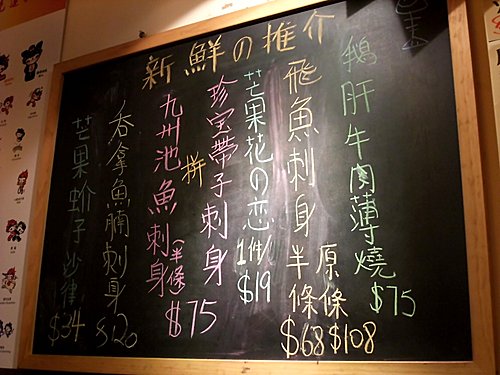 新鮮の推介
鵝肝牛肉薄燒
$75
飛魚刺身
半條
$68
原條
$108
芒果花の恋
1件/
$19
珍宝帶子刺身
拼
九州池魚刺身
(半條)
$75
吞拿魚腩刺身
$120
芒果蚧子沙律
$34